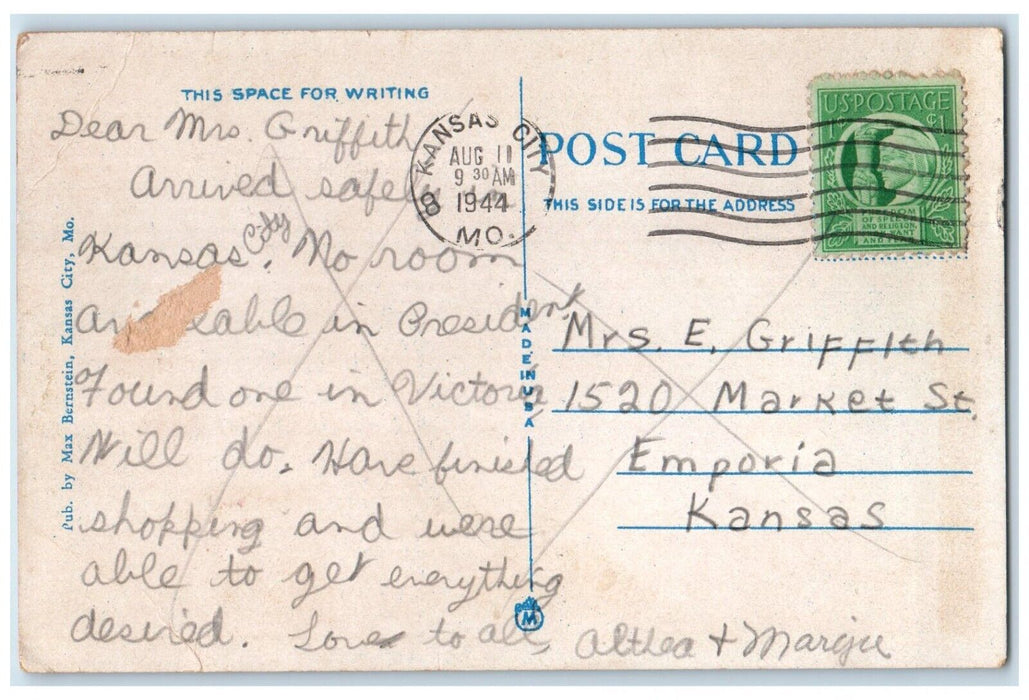 THIS SPACE FOR WRITING
Dear Mrs. Griffith
Arrived safely in
Kansas City. No room
available in President
Found one in Victoria
Will do. Have finished
shopping and were
able to get everything
desired. Love to all,
Althea + Margie
Pub. by Max Bernstein, Kansas City, Mo.
MADE IN U S A
M
KANSAS CITY
8
AUG 11
9 30 AM
1944
MO.
POST CARD
THIS SIDE IS FOR THE ADDRESS
U.S. POSTAGE
1 ¢1
FREEDOM
OF SPEECH
AND RELIGION,
FROM WANT
AND FEAR
Mrs. E. Griffith
1520 Market St.
Emporia
Kansas